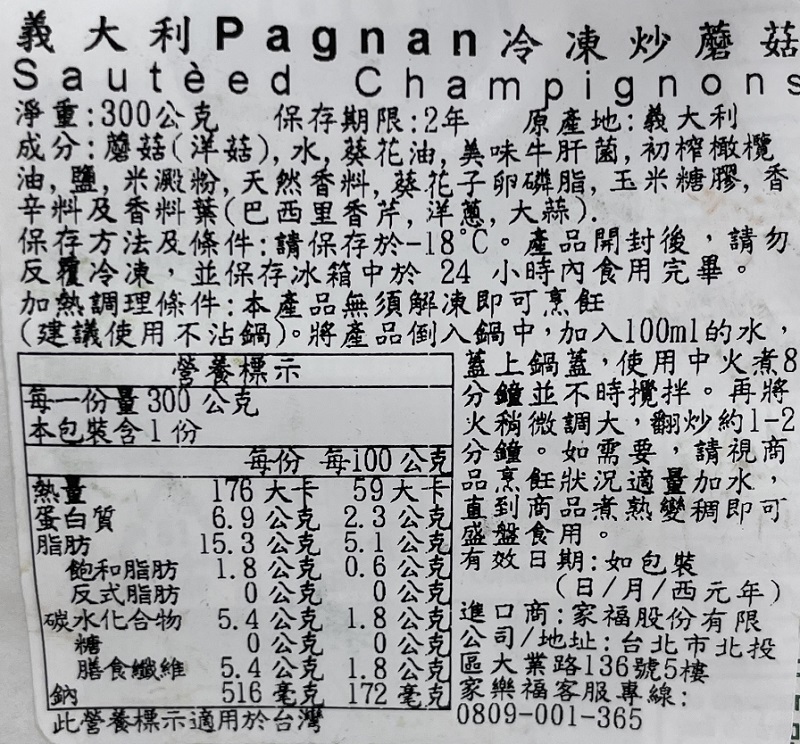 義大利Pagnan冷凍炒蘑菇
Sautèed Champignons
淨重:300公克 保存期限:2年 原產地:義大利
成分:蘑菇(洋菇),水,葵花油,美味牛肝菌,初榨橄欖
油,鹽,米澱粉,天然香料,葵花子卵磷脂,玉米糖膠,香
辛料及香料葉(巴西里香芹,洋蔥,大蒜).
保存方法及條件:請保存於-18°C。產品開封後，請勿
反覆冷凍，並保存冰箱中於 24 小時內食用完畢。
加熱調理條件:本產品無須解凍即可烹飪
(建議使用不沾鍋)。將產品倒入鍋中,加入100ml的水，
蓋上鍋蓋,使用中火煮8
分鐘並不時攪拌。再將
火稍微調大,翻炒約1-2
分鐘。如需要，請視商
品烹飪狀況適量加水，
直到商品煮熟變稠即可
盛盤食用。
有效日期:如包裝
(日/月/西元年)
進口商:家福股份有限
公司/地址:台北市北投
區大業路136號5樓
家樂福客服專線:
0809-001-365
營養標示
每一份量 300 公克
本包裝含 1 份
每份 每100 公克
熱量 176 大卡 59 大卡
蛋白質 6.9 公克 2.3 公克
脂肪 15.3 公克 5.1 公克
飽和脂肪 1.8 公克 0.6 公克
反式脂肪 0 公克 0 公克
碳水化合物 5.4 公克 1.8 公克
糖 0 公克 0 公克
膳食纖維 5.4 公克 1.8 公克
鈉 516 毫克 172 毫克
此營養標示適用於台灣